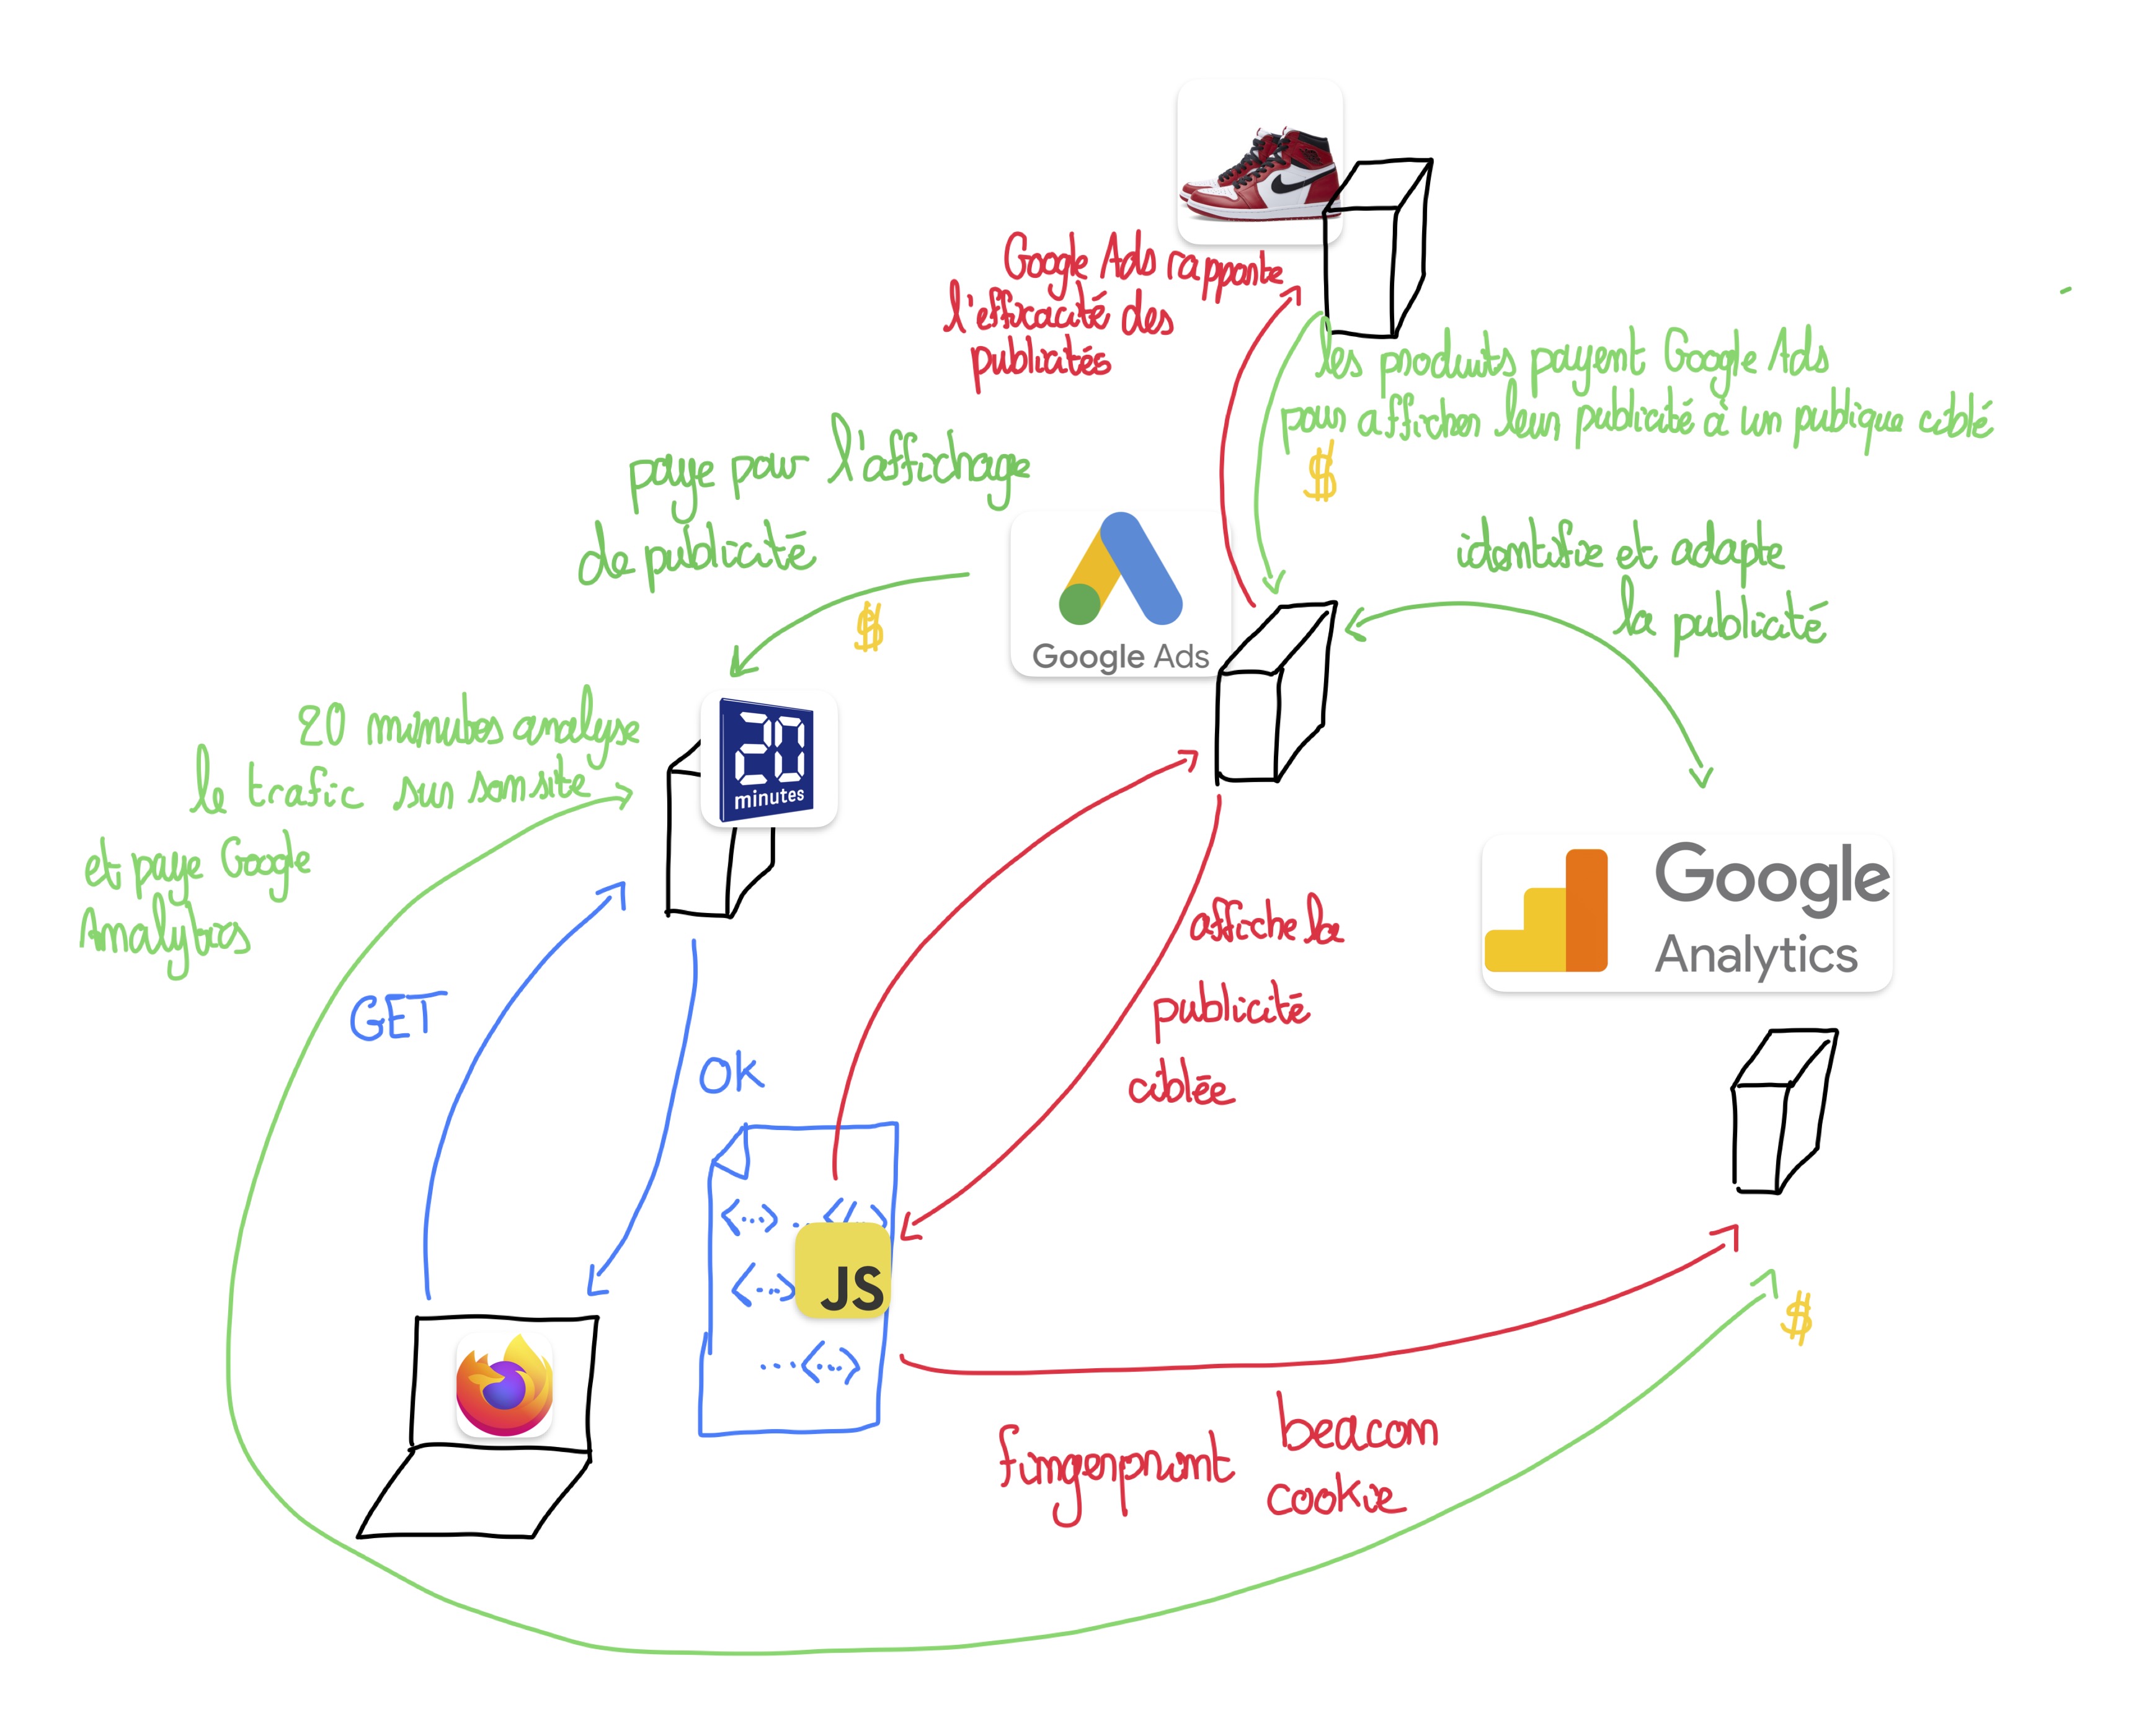 Google Ads rapporte
l'efficacité des
publicités
les produits payent Google Ads
pour afficher leur publicité à un publique ciblé
$
paye pour l'affichage
de publicité
$
identifie et adapte
la publicité
Google Ads
20 minutes analyse
le trafic sur son site
et paye Google
Analytics
20
minutes
Google
Analytics
GET
OK
affiche la
publicité
ciblée
<...>...</>
<...>
JS
...<...>
$
fingerprint
beacon
cookie